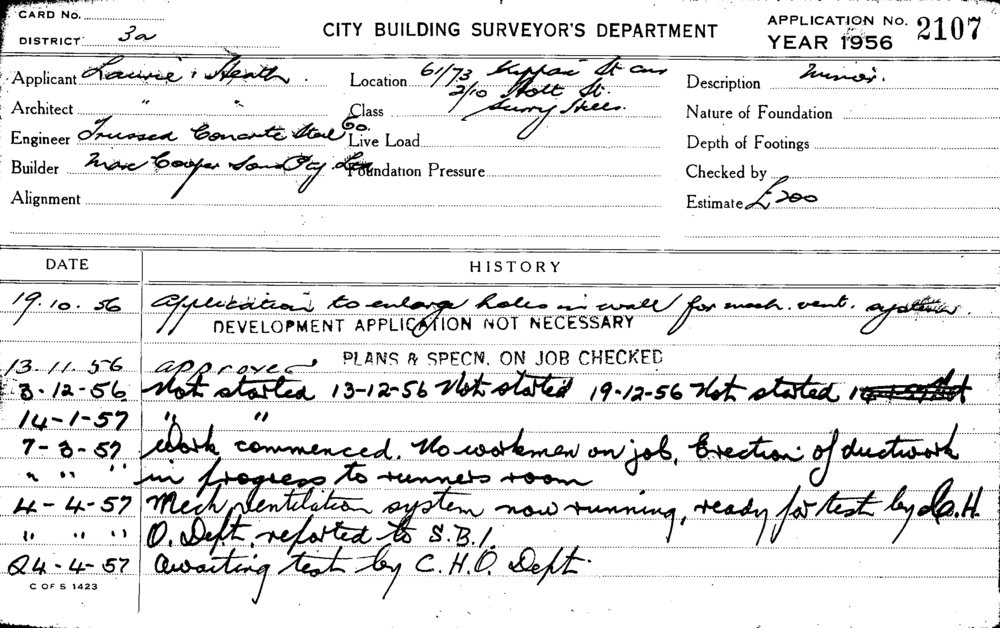 CARD No.
DISTRICT 3a
CITY BUILDING SURVEYOR'S DEPARTMENT
APPLICATION No. 2107
YEAR 1956
Applicant Laurie & Heath.
Architect " "
Engineer Trussed Concrete Steel Co.
Builder Max Cooper Sons Pty. Ltd
Alignment
Location 61/73 Kippax St cnr
2/10 Holt St.
Class Surry Hills.
Live Load
Foundation Pressure
Description Minor.
Nature of Foundation
Depth of Footings
Checked by
Estimate £200
DATE HISTORY
19.10.56 Application to enlarge holes in wall for mech. vent. system.
DEVELOPMENT APPLICATION NOT NECESSARY
PLANS & SPECN. ON JOB CHECKED
13.11.56 approved
3-12-56 Not started 13-12-56 Not started 19-12-56 Not started
14-1-57 " "
7-3-57 Work commenced. No workmen on job. Erection of ductwork
" " " in progress to runners room
4-4-57 Mech ventilation system now running, ready for test by C.H.
" " " O. Dept. reported to S.B.I.
24-4-57 Awaiting test by C.H.O. Dept.
C OF S 1423